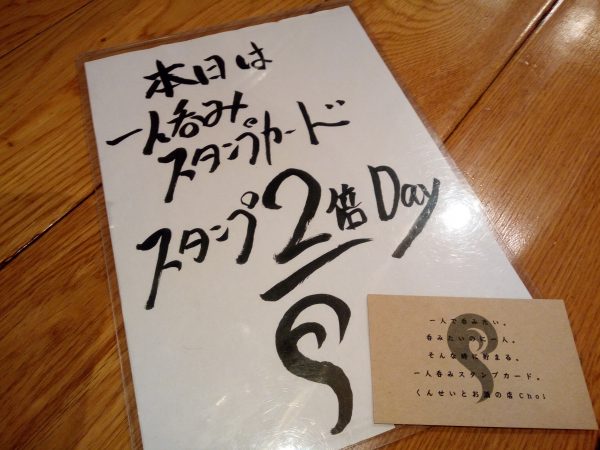 本日は
一人呑み
スタンプカード
スタンプ2倍Day
一人で呑みたい。
呑みたいのに一人。
そんな時に貯まる。
一人呑みスタンプカード。
くんせいとお酒の店Choi